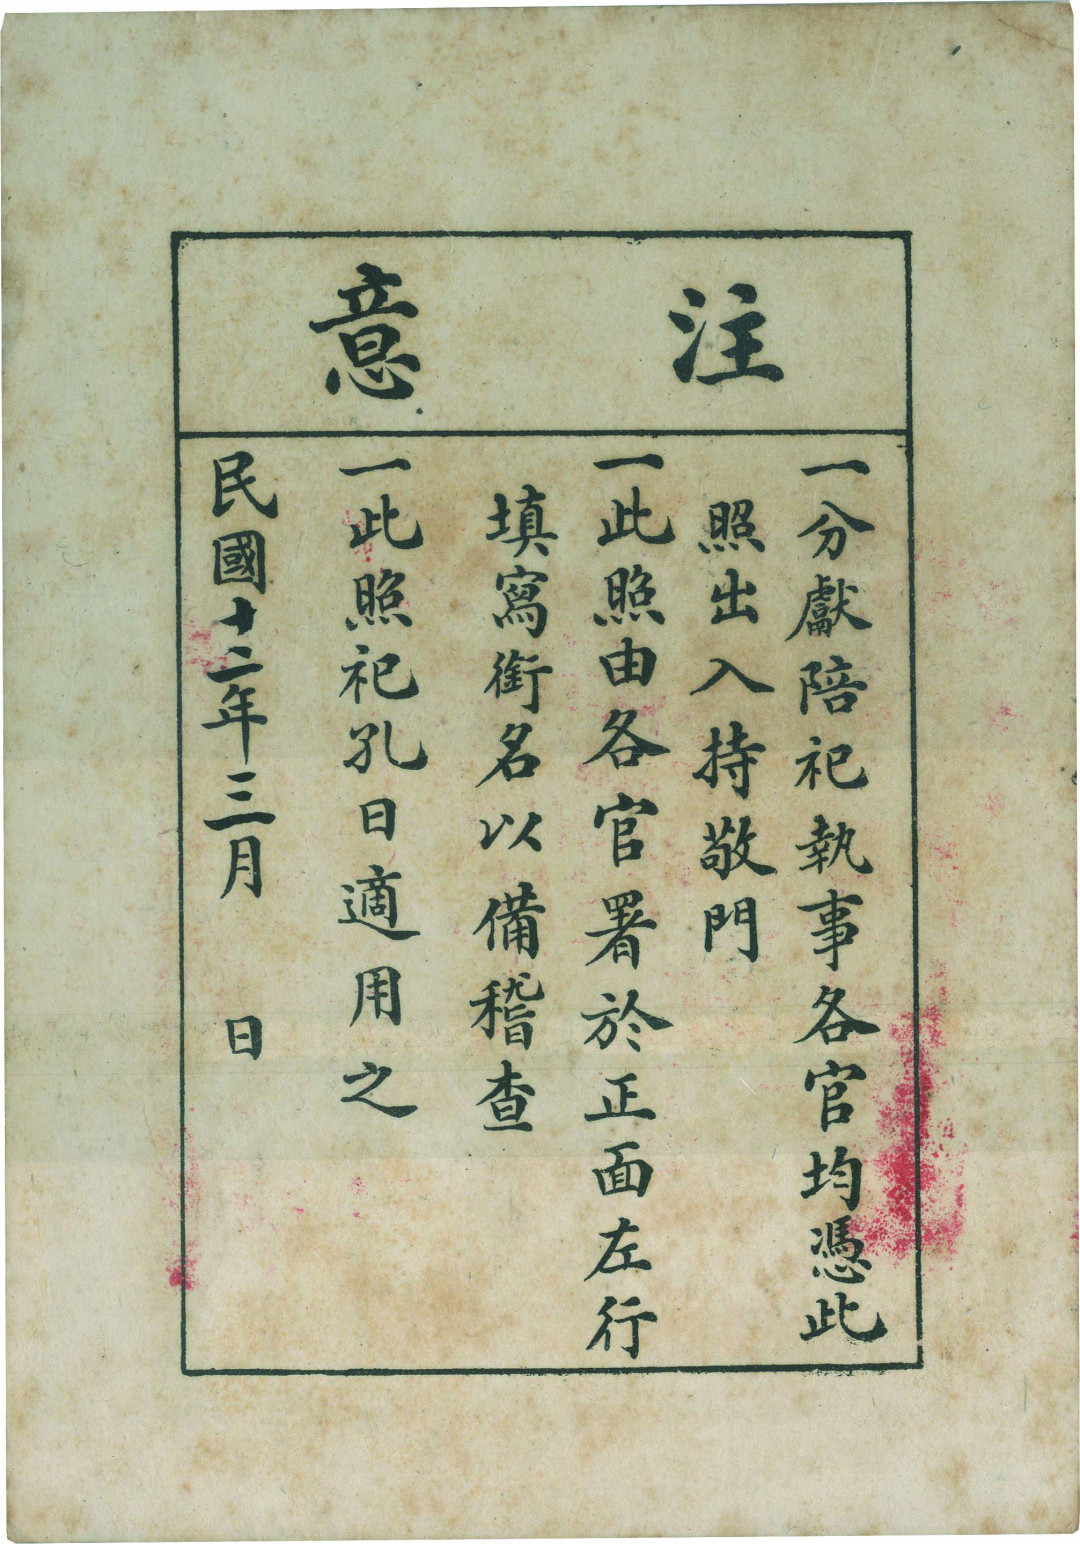 注意
一分獻陪祀執事各官均憑此
照出入持敬門
一此照由各官署於正面左行
填寫銜名以備稽查
一此照祀孔日適用之
民國十二年三月　日